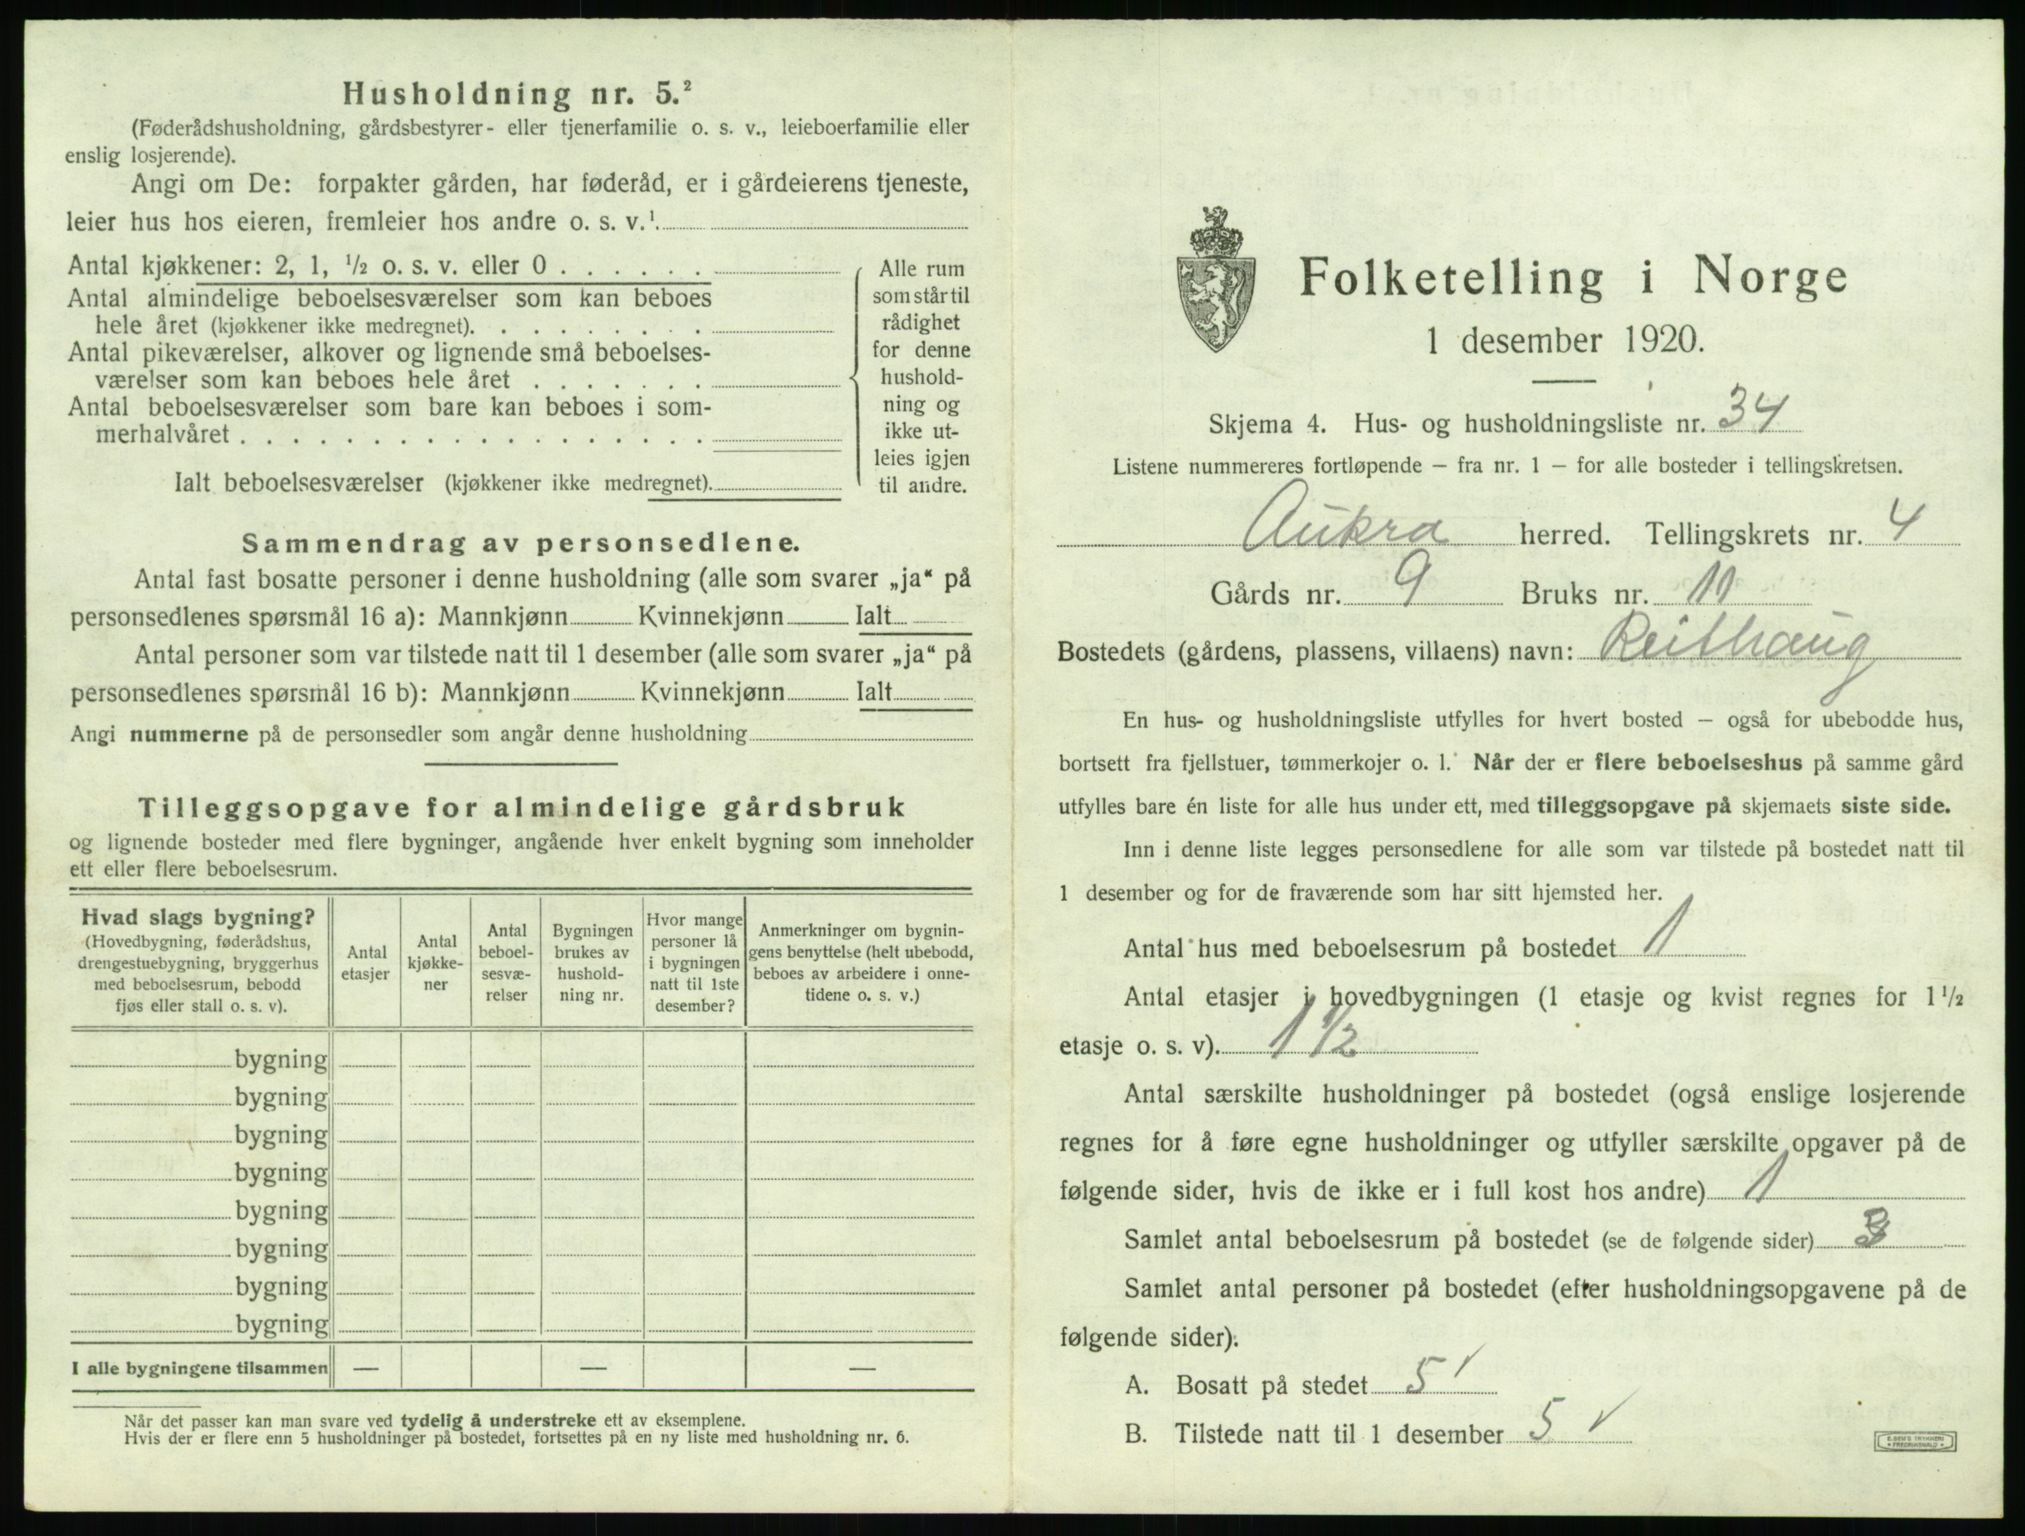 Husholdning nr. 5.²
(Føderådshusholdning, gårdsbestyrer- eller tjenerfamilie o. s. v., leieboerfamilie eller
enslig losjerende).
Angi om De: forpakter gården, har føderåd, er i gårdeierens tjeneste,
leier hus hos eieren, fremleier hos andre o. s. v.¹.
Antal kjøkkener: 2, 1, ½ o. s. v. eller 0 . . . . . .
Antal almindelige beboelsesværelser som kan beboes
hele året (kjøkkener ikke medregnet). . . . . . . . .
Antal pikeværelser, alkover og lignende små beboelses-
værelser som kan beboes hele året . . . . . . .
Antal beboelsesværelser som bare kan beboes i som-
merhalvåret . . . . . . . . . . . . . . . . . .
Ialt beboelsesværelser (kjøkkener ikke medregnet).
Alle rum
som står til
rådighet
for denne
hushold-
ning og
ikke ut-
leies igjen
til andre.
Sammendrag av personsedlene.
Antal fast bosatte personer i denne husholdning (alle som svarer „ja“ på
personsedlenes spørsmål 16 a): Mannkjønn Kvinnekjønn Ialt
Antal personer som var tilstede natt til 1 desember (alle som svarer „ja“ på
personsedlenes spørsmål 16 b): Mannkjønn Kvinnekjønn Ialt
Angi nummerne på de personsedler som angår denne husholdning
Tilleggsopgave for almindelige gårdsbruk
og lignende bosteder med flere bygninger, angående hver enkelt bygning som inneholder
ett eller flere beboelsesrum.
Hvad slags bygning?
(Hovedbygning, føderådshus,
drengestuebygning, bryggerhus
med beboelsesrum, bebodd
fjøs eller stall o. s. v).
Antal
etasjer
Antal
kjøkke-
ner
Antal
beboel-
sesvæ-
relser
Bygningen
brukes av
hushold-
ning nr.
Hvor mange
personer lå
i bygningen
natt til 1ste
desember?
Anmerkninger om bygnin-
gens benyttelse (helt ubebodd,
beboes av arbeidere i onne-
tidene o. s. v.)
bygning
bygning
bygning
bygning
bygning
bygning
bygning
bygning
I alle bygningene tilsammen — — —
Når det passer kan man svare ved tydelig å understreke ett av eksemplene.
Hvis der er flere enn 5 husholdninger på bostedet, fortsettes på en ny liste med husholdning nr. 6.
Folketelling i Norge
1 desember 1920.
Skjema 4. Hus- og husholdningsliste nr. 34
Listene nummereres fortløpende – fra nr. 1 – for alle bosteder i tellingskretsen.
Aukra herred. Tellingskrets nr. 4
Gårds nr. 9 Bruks nr. 11
Bostedets (gårdens, plassens, villaens) navn: Reithaug
En hus- og husholdningsliste utfylles for hvert bosted – også for ubebodde hus,
bortsett fra fjellstuer, tømmerkojer o. l. Når der er flere beboelseshus på samme gård
utfylles bare én liste for alle hus under ett, med tilleggsopgave på skjemaets siste side.
Inn i denne liste legges personsedlene for alle som var tilstede på bostedet natt til
1 desember og for de fraværende som har sitt hjemsted her.
Antal hus med beboelsesrum på bostedet 1
Antal etasjer i hovedbygningen (1 etasje og kvist regnes for 1½
etasje o. s. v). 1 1/2
Antal særskilte husholdninger på bostedet (også enslige losjerende
regnes for å føre egne husholdninger og utfyller særskilte opgaver på de
følgende sider, hvis de ikke er i full kost hos andre) 1
Samlet antal beboelsesrum på bostedet (se de følgende sider) 3
Samlet antal personer på bostedet (efter husholdningsopgavene på de
følgende sider).
A. Bosatt på stedet 5 ✓
B. Tilstede natt til 1 desember 5 ✓